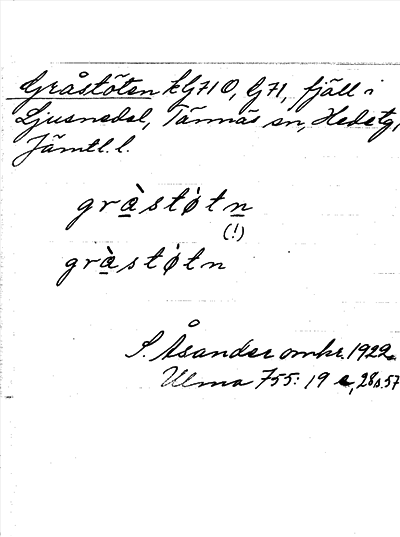 Gråstöten kG710, G71, fjäll i
Ljusnedal, Tännäs sn, Hedetg,
Jämtl. l.
grå̀stø̀tn
(!)
grå̀stø̀tn
S. Åsander omkr. 1922.
Ulma 755: 19 s, 28 s. 57